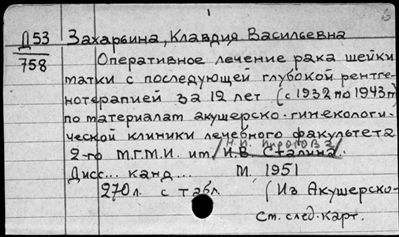 Д53 Захарьина, Клавдия Васильевна
758
Оперативное лечение рака шейки
матки с последующей глубокой рентге-
нотерапией за 12 лет (с 1932 по 1943 г)
по материалам акушерско-гинекологи-
ческой клиники лечебного факультета
2-го М.Г.М.И. им. И.В. Сталина.
Дисс... канд... М. 1951
270 л. с табл. (Из Акушерско-
См. след. карт.